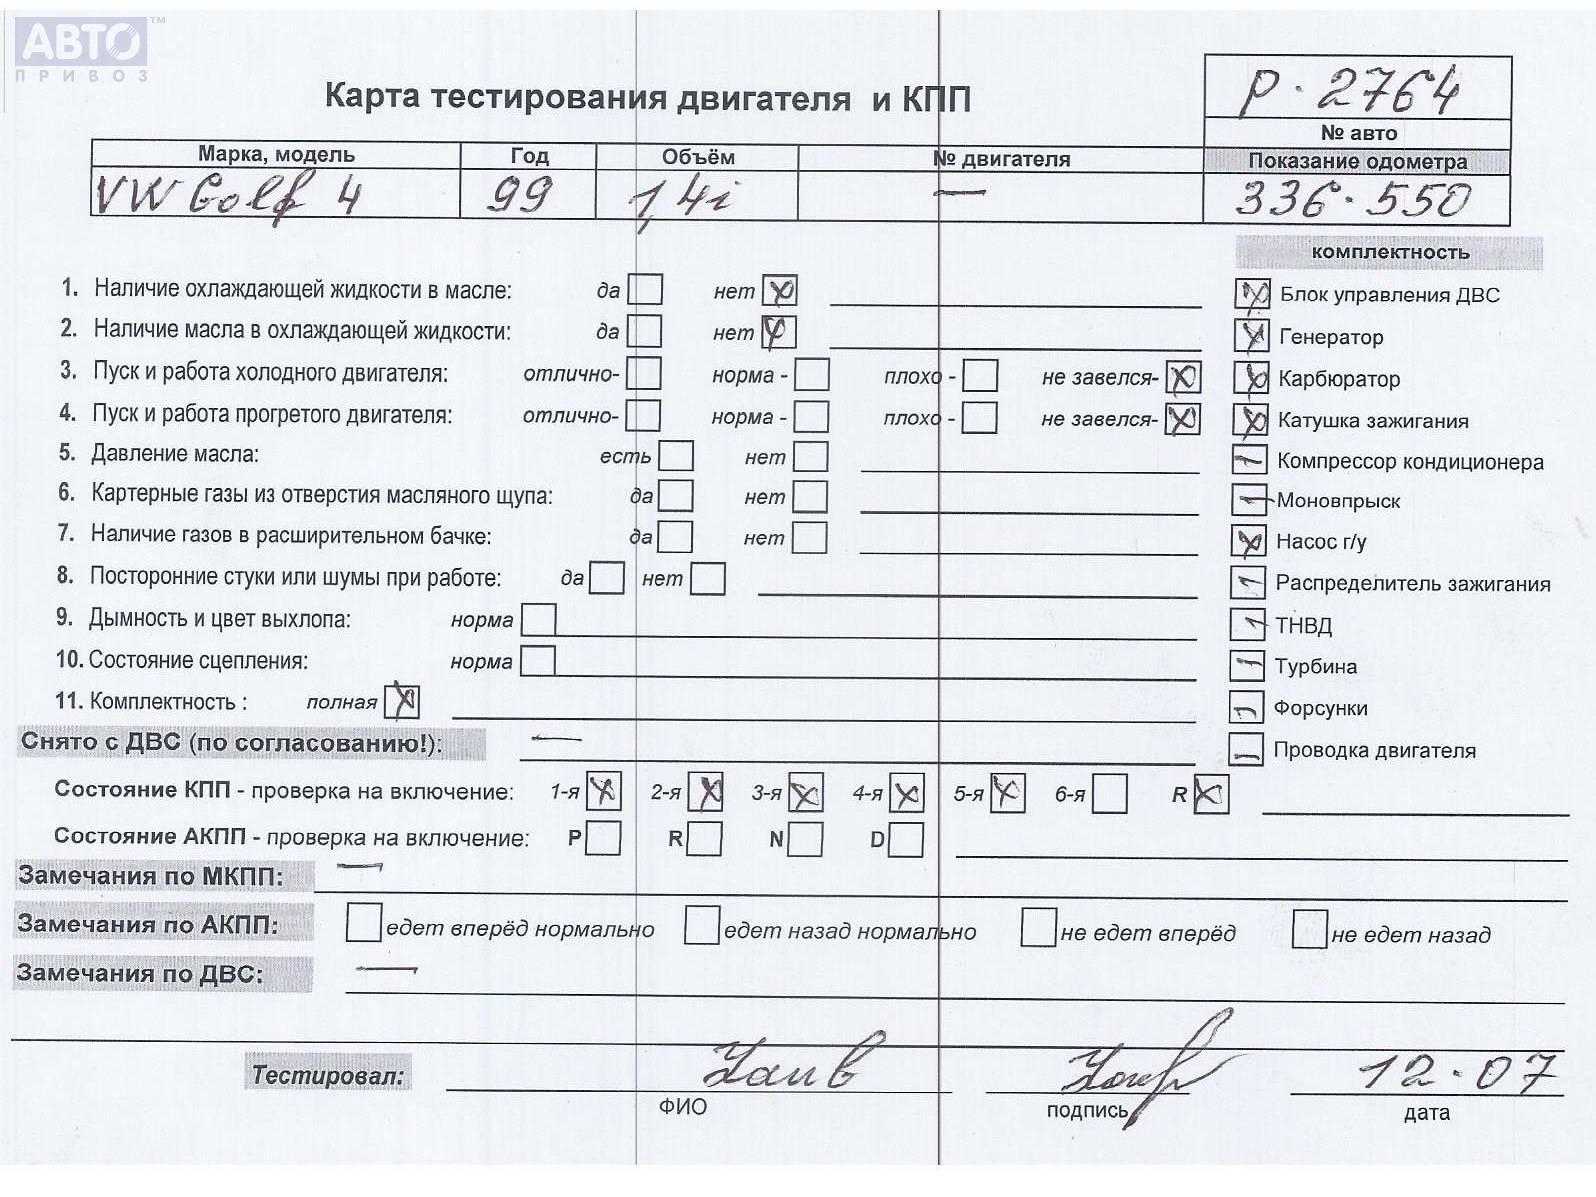 АВТО™
ПРИВОЗ
Карта тестирования двигателя и КПП
Р·2764
№ авто
Марка, модель Год Объём № двигателя Показание одометра
VW Golf 4 99 1,4i — 336·550
комплектность
1. Наличие охлаждающей жидкости в масле: да нет X
2. Наличие масла в охлаждающей жидкости: да нет X
3. Пуск и работа холодного двигателя: отлично- норма - плохо - не завелся- X
4. Пуск и работа прогретого двигателя: отлично- норма - плохо - не завелся- X
5. Давление масла: есть нет
6. Картерные газы из отверстия масляного щупа: да нет
7. Наличие газов в расширительном бачке: да нет
8. Посторонние стуки или шумы при работе: да нет
9. Дымность и цвет выхлопа: норма
10. Состояние сцепления: норма
11. Комплектность : полная X
X Блок управления ДВС
X Генератор
X Карбюратор
X Катушка зажигания
— Компрессор кондиционера
— Моновпрыск
X Насос г/у
— Распределитель зажигания
— ТНВД
— Турбина
— Форсунки
— Проводка двигателя
Снято с ДВС (по согласованию!): —
Состояние КПП - проверка на включение: 1-я X 2-я X 3-я X 4-я X 5-я X 6-я R X
Состояние АКПП - проверка на включение: P R N D
Замечания по МКПП: —
Замечания по АКПП: едет вперёд нормально едет назад нормально не едет вперёд не едет назад
Замечания по ДВС: —
Тестировал: 12·07
ФИО подпись дата